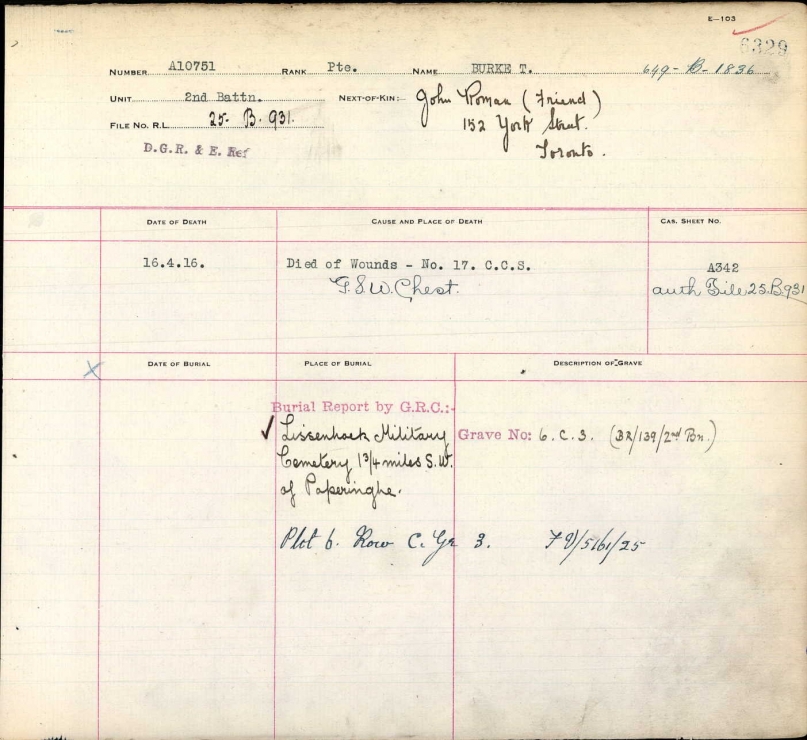 E-103
6329
NUMBER A10751 RANK Pte. NAME BURKE T. 649-B-1836
UNIT 2nd Battn. NEXT-OF-KIN:- John Roman (Friend)
FILE NO. R.L. 25- B. 931. 152 York Street.
D.G.R. & E. Ref Toronto.
DATE OF DEATH CAUSE AND PLACE OF DEATH CAS. SHEET NO.
16.4.16. Died of Wounds - No. 17. C.C.S. A342
G.S.W. Chest. auth File 25.B.931
X DATE OF BURIAL PLACE OF BURIAL DESCRIPTION OF GRAVE
Burial Report by G.R.C.:-
✓ Lissenhoek Military Grave No: 6. C. 3. (BR/139/2nd Bn.)
Cemetery 1 3/4 miles S.W.
of Poperinghe.
Plot 6. Row C. Gr 3.